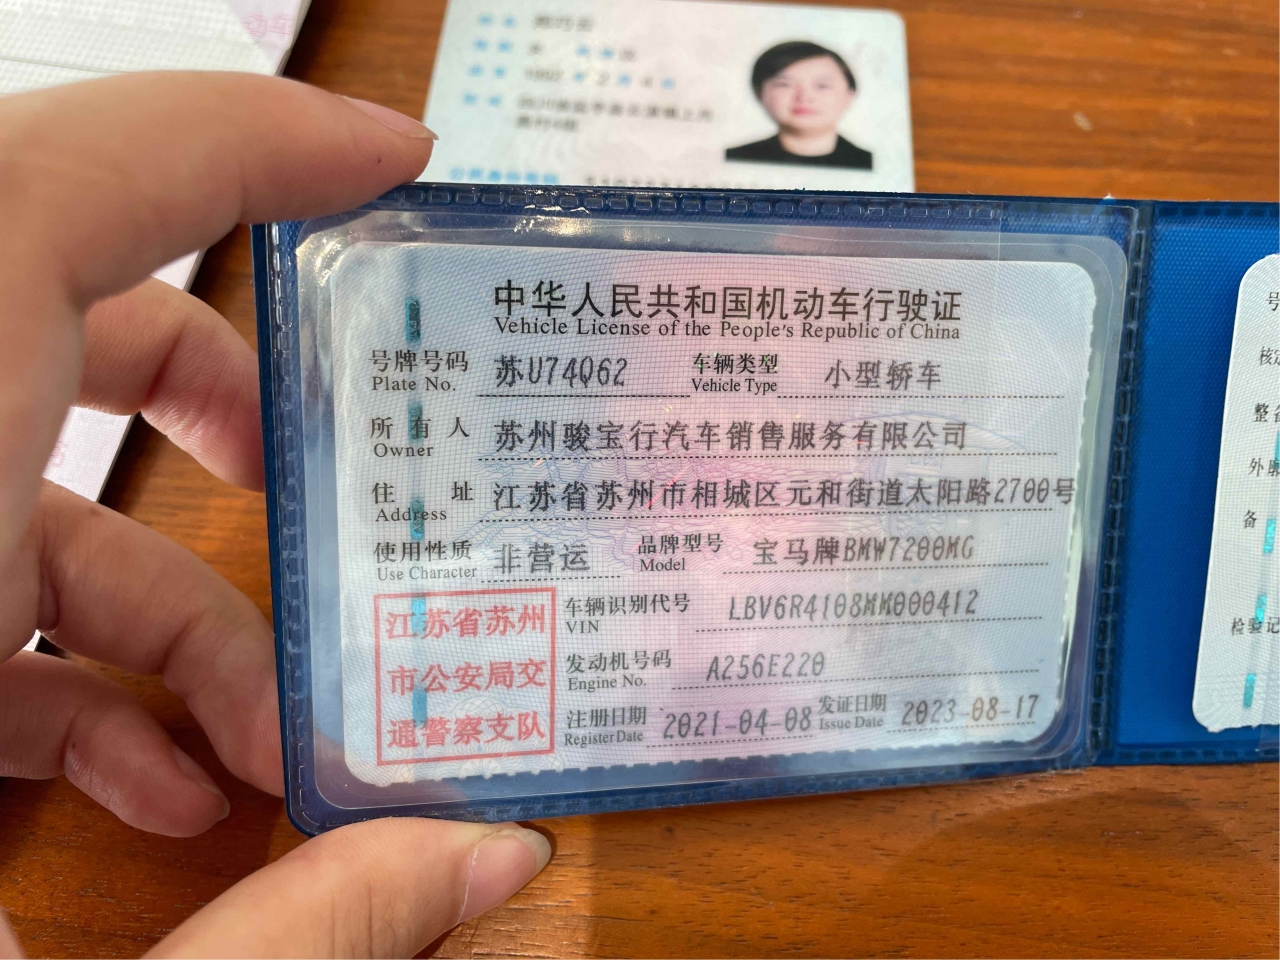 中华人民共和国机动车行驶证
Vehicle License of the People's Republic of China
号牌号码 苏U74Q62 车辆类型 小型轿车
Plate No. Vehicle Type
所有人 苏州骏宝行汽车销售服务有限公司
Owner
住址 江苏省苏州市相城区元和街道太阳路2700号
Address
使用性质 非营运 品牌型号 宝马牌BMW7200MG
Use Character Model
江苏省苏州
市公安局交
通警察支队
车辆识别代号 LBV6R4108MM000412
VIN
发动机号码 A256E220
Engine No.
注册日期 2021-04-08 发证日期 2023-08-17
Register Date Issue Date
号
核定
整
外
备
检验记